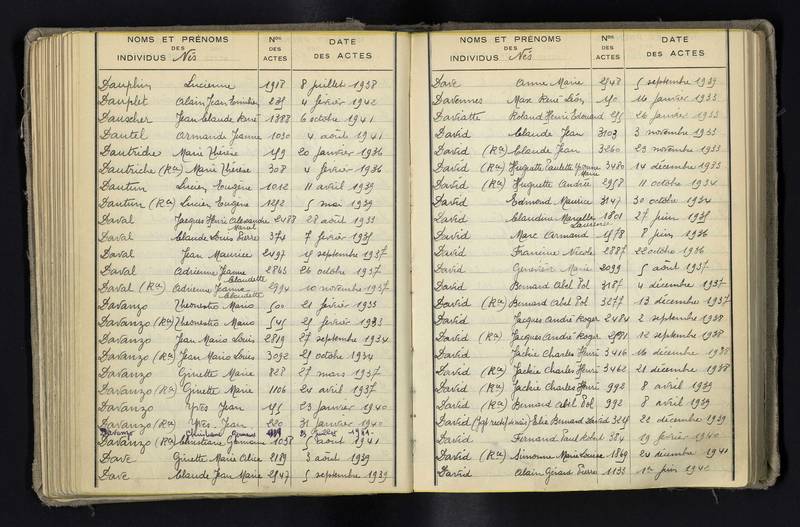 NOMS ET PRÉNOMS
DES
INDIVIDUS Nés
Nos
DES
ACTES
DATE
DES ACTES
Dauphin Lucienne 1918 8 juillet 1938
Dauplet Alain Jean Emilien 4 février 1942
Dauscher Jean Claude René 1388 6 octobre 1941
Dautel Armande Jeanne 1030 4 août 1941
Dautriche Marie Thérèse 159 20 janvier 1936
Dautriche (Rn) Marie Thérèse 308 4 février 1936
Dautun Lucien Eugène 1012 11 avril 1939
Dautun (Rn) Lucien Eugène 1252 5 mai 1939
Daval Jacques Henri Alexandre 2488 28 août 1933
Marcel
Daval Claude Louis Pierre 374 7 février 1935
Daval Jean Maurice 2497 15 septembre 1937
Daval Adrienne Jeanne 2863 26 octobre 1937
Claudette
Daval (Rn) Adrienne Jeanne 2994 10 novembre 1937
Claudette
Davanzo Theonesto Mario 500 21 février 1933
Davanzo (Rn) Theonesto Mario 545 25 février 1933
Davanzo Jean Marie Louis 2819 27 septembre 1934
Davanzo (Rn) Jean Marie Louis 3092 25 octobre 1934
Davanzo Ginette Marie 828 27 mars 1937
Davanzo (Rn) Ginette Marie 1106 24 avril 1937
Davanzo Yves Jean 155 23 janvier 1940
Davanzo (Rn) Yves Jean 220 31 janvier 1940
Davanzo Christiane Germaine juillet 1941
Davanzo (Rn) Christiane Germaine 1038 5 août 1941
Dave Ginette Marie Alice 2189 3 août 1939
Dave Claude Jean Marie 2547 5 septembre 1939
NOMS ET PRÉNOMS
DES
INDIVIDUS Nés
Nos
DES
ACTES
DATE
DES ACTES
Dave Anne Marie 2548 5 septembre 1939
Davennes Max René Léon 150 16 janvier 1933
Daviatte Roland Henri Edouard 255 26 janvier 1933
David Claude Jean 3103 3 novembre 1933
David (Rn) Claude Jean 3260 23 novembre 1933
David (Rn) Huguette Paulette Yvonne 3480 14 décembre 1933
Marie
David (Rn) Huguette Andrée 2958 11 octobre 1934
David Edmond Maurice 3147 30 octobre 1934
David Claudine Marcelle 1801 27 juin 1935
Laurence
David Marc Armand 1578 8 juin 1936
David Francine Nicole 2887 22 octobre 1936
David Geneviève Marie 2099 5 août 1937
David Bernard Abel Pol 3187 4 décembre 1937
David (Rn) Bernard Abel Pol 3277 13 décembre 1937
David Jacques André Roger 2484 2 septembre 1938
David (Rn) Jacques André Roger 2591 12 septembre 1938
David Jackie Charles Henri 3416 16 décembre 1938
David (Rn) Jackie Charles Henri 3462 21 décembre 1938
David (Rn) Jackie Charles Henri 992 8 avril 1939
David (Rn) Bernard Abel Pol 992 8 avril 1939
David Elie Bernard David 22 décembre 1939
David Fernand Paul Robert 384 19 février 1940
David (Rn) Simonne Marie Louise 1869 24 décembre 1941
David Alain Gérard Pierre 1133 1er juin 1942